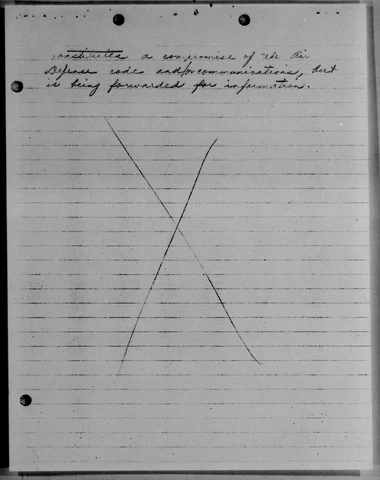 constitutes a compromise of the Air
Defense code and/or communications, but
is being forwarded for information.